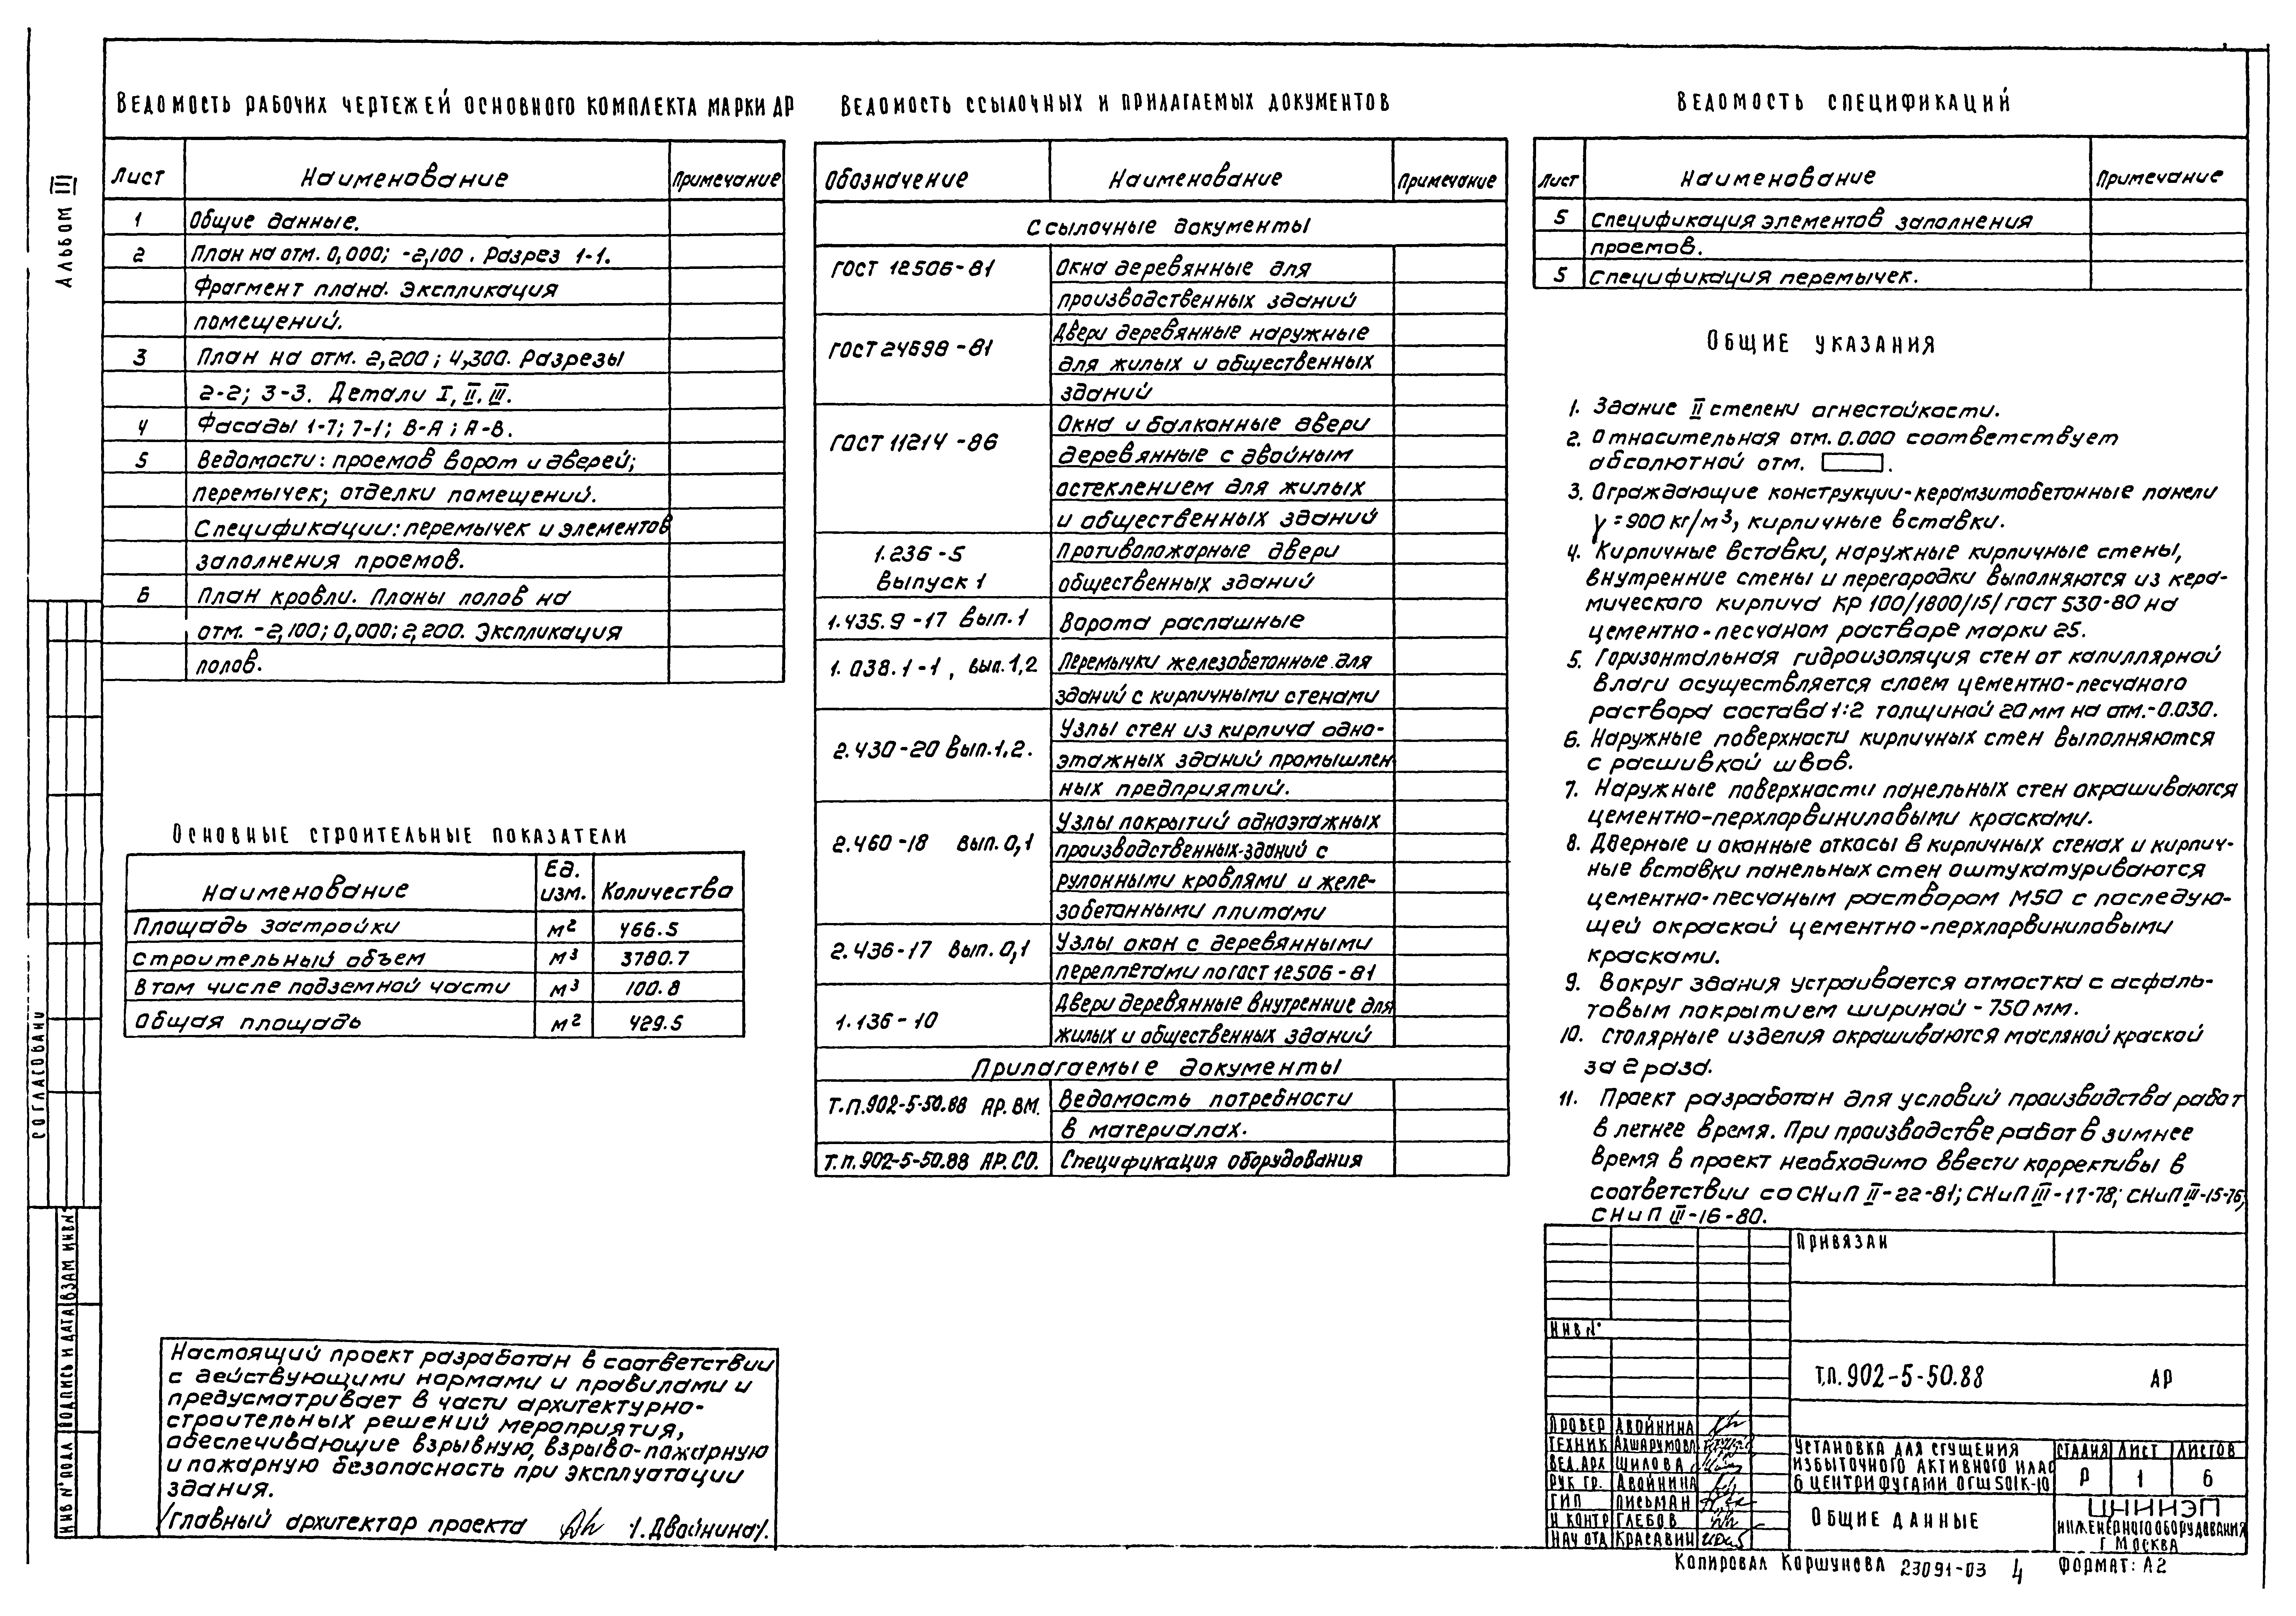 Альбом III
Ведомость рабочих чертежей основного комплекта марки АР
Лист Наименование Примечание
1 Общие данные.
2 План на отм. 0,000; -2,100. Разрез 1-1.
Фрагмент плана. Экспликация
помещений.
3 План на отм. 2,200; 4,300. Разрезы
2-2; 3-3. Детали I, II. III.
4 Фасады 1-7; 7-1; В-А; А-В.
5 Ведомости: проемов ворот и дверей;
перемычек; отделки помещений.
Спецификации: перемычек и элементов
заполнения проемов.
6 План кровли. Планы полов на
отм. -2,100; 0,000; 2,200. Экспликация
полов.
Основные строительные показатели
Наименование Ед. изм. Количества
Площадь застройки м2 466.5
Строительный объем м3 3780.7
В том числе подземной части м3 100.8
Общая площадь м2 429.5
Настоящий проект разработан в соответствии
с действующими нормами и правилами и
предусматривает в части архитектурно-
строительных решений мероприятия,
обеспечивающие взрывную, взрыво-пожарную
и пожарную безопасность при эксплуатации
здания.
Главный архитектор проекта /.Двойнина/.
Ведомость ссылочных и прилагаемых документов
Обозначение Наименование Примечание
Ссылочные документы
ГОСТ 12506-81 Окна деревянные для
производственных зданий
ГОСТ 24698-81 Двери деревянные наружные
для жилых и общественных
зданий
ГОСТ 11214-86 Окна и балконные двери
деревянные с двойным
остеклением для жилых
и общественных зданий
1.236-5 Противопожарные двери
Выпуск 1 общественных зданий
1.435.9-17 Вып.1 Ворота распашные
1.038.1-1, вып.1,2 Перемычки железобетонные для
зданий с кирпичными стенами
2.430-20 Вып.1,2. Узлы стен из кирпича одно-
этажных зданий промышлен
ных предприятий.
2.460-18 вып.0,1 Узлы покрытий одноэтажных
производственных зданий с
рулонными кровлями и желе-
зобетонными плитами
2.436-17 Вып.0,1 Узлы окон с деревянными
переплетами по гост 12506-81
1.136-10 Двери деревянные внутренние для
жилых и общественных зданий
Прилагаемые документы
Т.П.902-5-50.88 АР.ВМ. Ведомость потребности
в материалах.
Т.П.902-5-50.88 АР.СО. Спецификация оборудования
Ведомость спецификаций
Лист Наименование Примечание
5 Спецификация элементов заполнения
проемов.
5 Спецификация перемычек.
Общие указания
1. Здание II степени огнестойкости.
2. Относительная отм. 0.000 соответствует
абсолютной отм. .
3. Ограждающие конструкции-керамзитобетонные панели
γ=900 кг/м3, кирпичные вставки.
4. Кирпичные вставки, наружные кирпичные стены,
внутренние стены и перегородки выполняются из кера-
мического кирпича КР 100/1800/15/ гост 530-80 на
цементно-песчаном растворе марки 25.
5. Горизонтальная гидроизоляция стен от капиллярной
влаги осуществляется слоем цементно-песчаного
раствора состава 1:2 толщиной 20 мм на отм.-0.030.
6. Наружные поверхности кирпичных стен выполняются
с расшивкой швов.
7. Наружные поверхности панельных стен окрашиваются
цементно-перхлорвиниловыми красками.
8. Дверные и оконные откосы в кирпичных стенах и кирпич-
ные вставки панельных стен оштукатуриваются
цементно-песчаным раствором М50 с последую-
щей окраской цементно-перхлорвиниловыми
красками.
9. Вокруг здания устраивается отмостка с асфаль-
товым покрытием шириной - 750 мм.
10. Столярные изделия окрашиваются масляной краской
за 2 раза.
11. Проект разработан для условий производства работ
в летнее время. При производстве работ в зимнее
время в проект необходимо ввести коррективы в
соответствии со СНиП II-22-81; СНиП III-17-78; СНиП III-15-76;
СНиП III-16-80.
Привязан
Инв №
Т.П. 902-5-50.88 АР
Провер Двойнина
Техник
Вед.арх Шилова
Рук гр. Двойнина
ГИП Письман
Н контр Глебов
Нач отд Красавин
Установка для сгущения
избыточного активного ила с
6 центрифугами ОГШ 501К-10
Стадия Лист Листов
Р 1 6
Общие данные
ЦНИИЭП
инженерного оборудования
г Москва
Копировал Коршунова 23091-03 4 Формат: А2
Согласовано
Взам инв №
Подпись и дата
Инв № подл